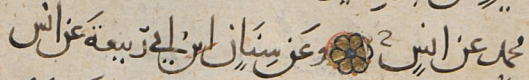 محمد عن انسٍ وعَن سِنَانٍ ابن ابي رَبيعةَ عَن انس